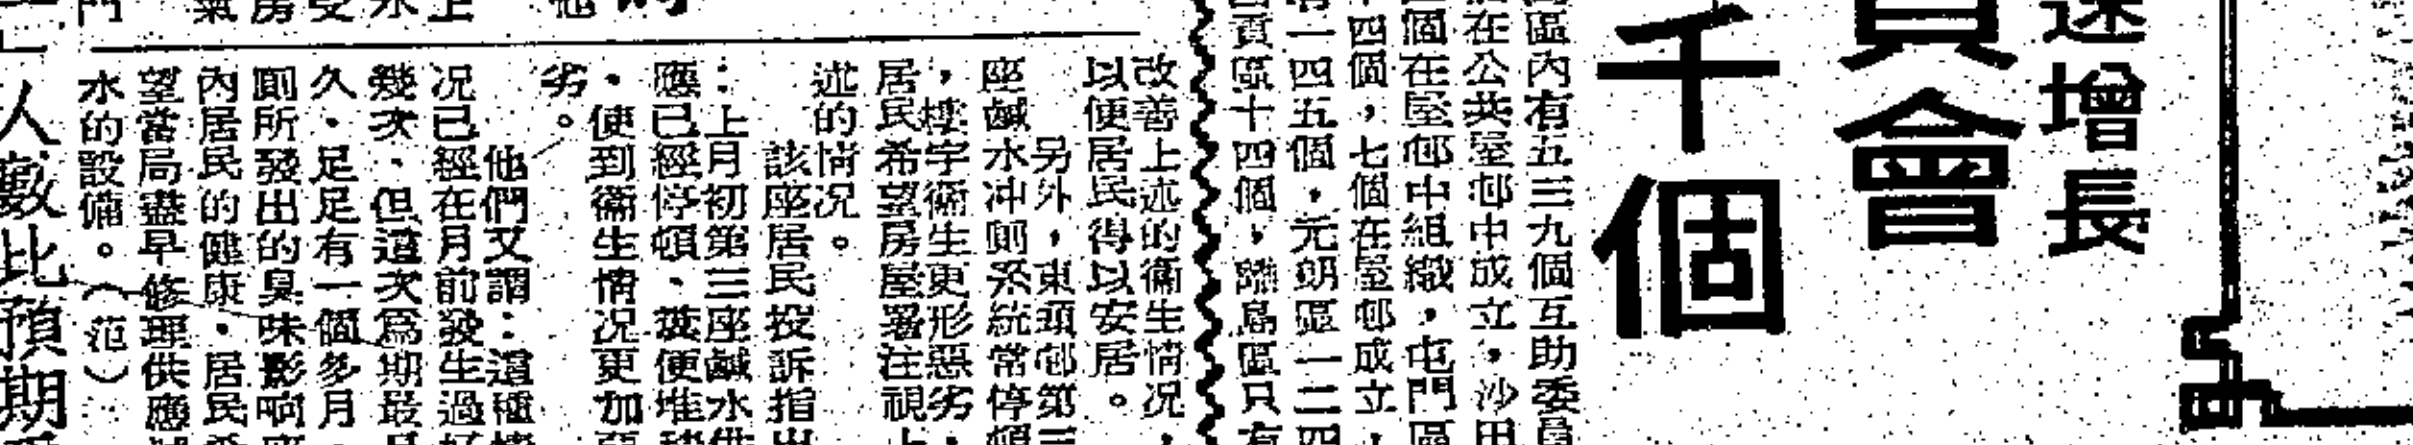 速增長
員會
千個
區內有五三九個互助委員
在公共屋邨中成立，沙田
個在屋邨中組織，屯門區
四個，七個在屋邨成立，
一四五個，元朗區一二四
貢區十四個，離島區只有
改善上述的衞生情况，
以便居民得以安居。
另外，東頭邨第三
座鹹水冲厠系統常停頓
，樓宇衞生更形惡劣，
居民希望房屋署注視上
述的情况。
該座居民投訴指出
：上月初第三座鹹水供
應已經停頓、糞便堆積
。便到衞生情况更加惡
劣。
他們又謂：這種情
况已經在月前發生過好
幾次、但這次爲期最長
久、足足有一個多月。
厠所發出的臭味影响座
內居民的健康。居民希
望當局盡早修理供應鹹
水的設備。（范）
人數比預期